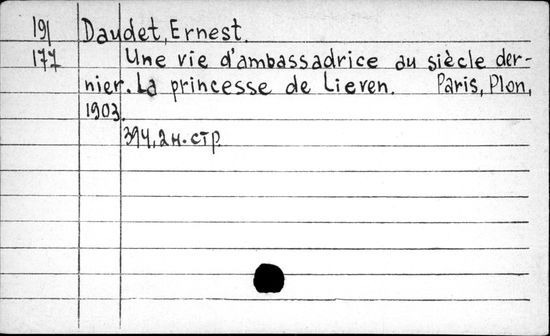 191 Daudet, Ernest.
177 Une vie d'ambassadrice au siècle der-
nier. La princesse de Lieven. Paris, Plon,
1903.
394, 2 н. стр.